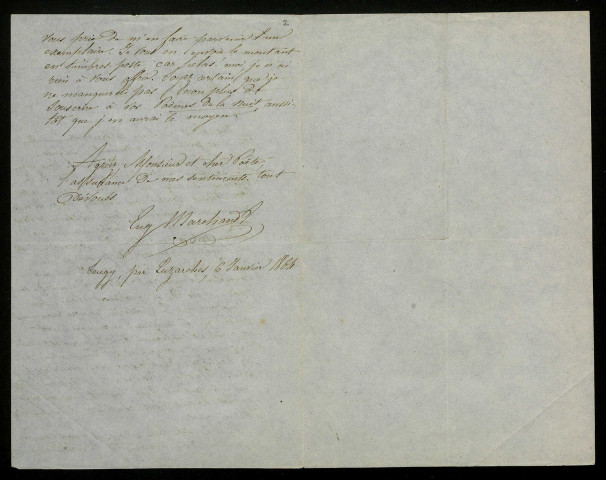 2
vous prie de m'en faire parvenir un
exemplaire. Je vous en envoie le montant
en timbres poste, car hélas! moi je n'ai
rien à vous offrir. Soyez certain que je
ne manquerai pas non plus de
souscrire à vos Poèmes de la Nuit aussi-
tôt que j'en aurai le moyen.
Agréez, Monsieur et cher Poète,
l'assurance de mes sentiments tout
dévoués
Eug Marchand
par Luzarches, 6 Janvier 1864